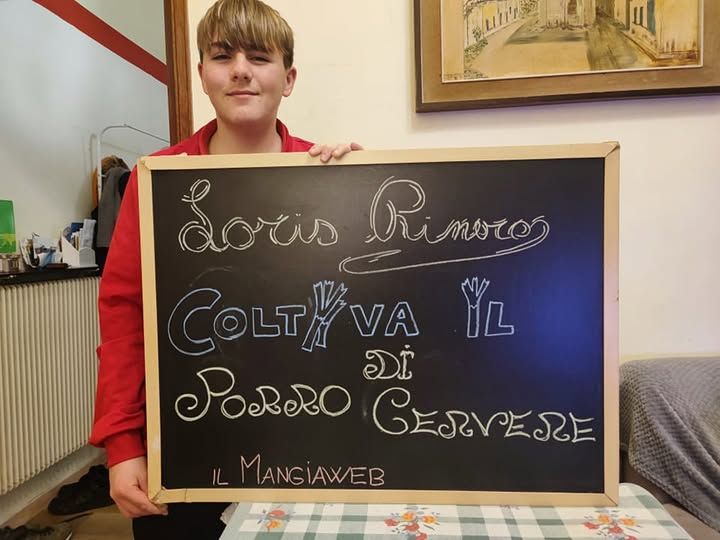 Loris Rimorò
COLTIVA IL
DI
PORRO CERVERE
IL MANGIAWEB